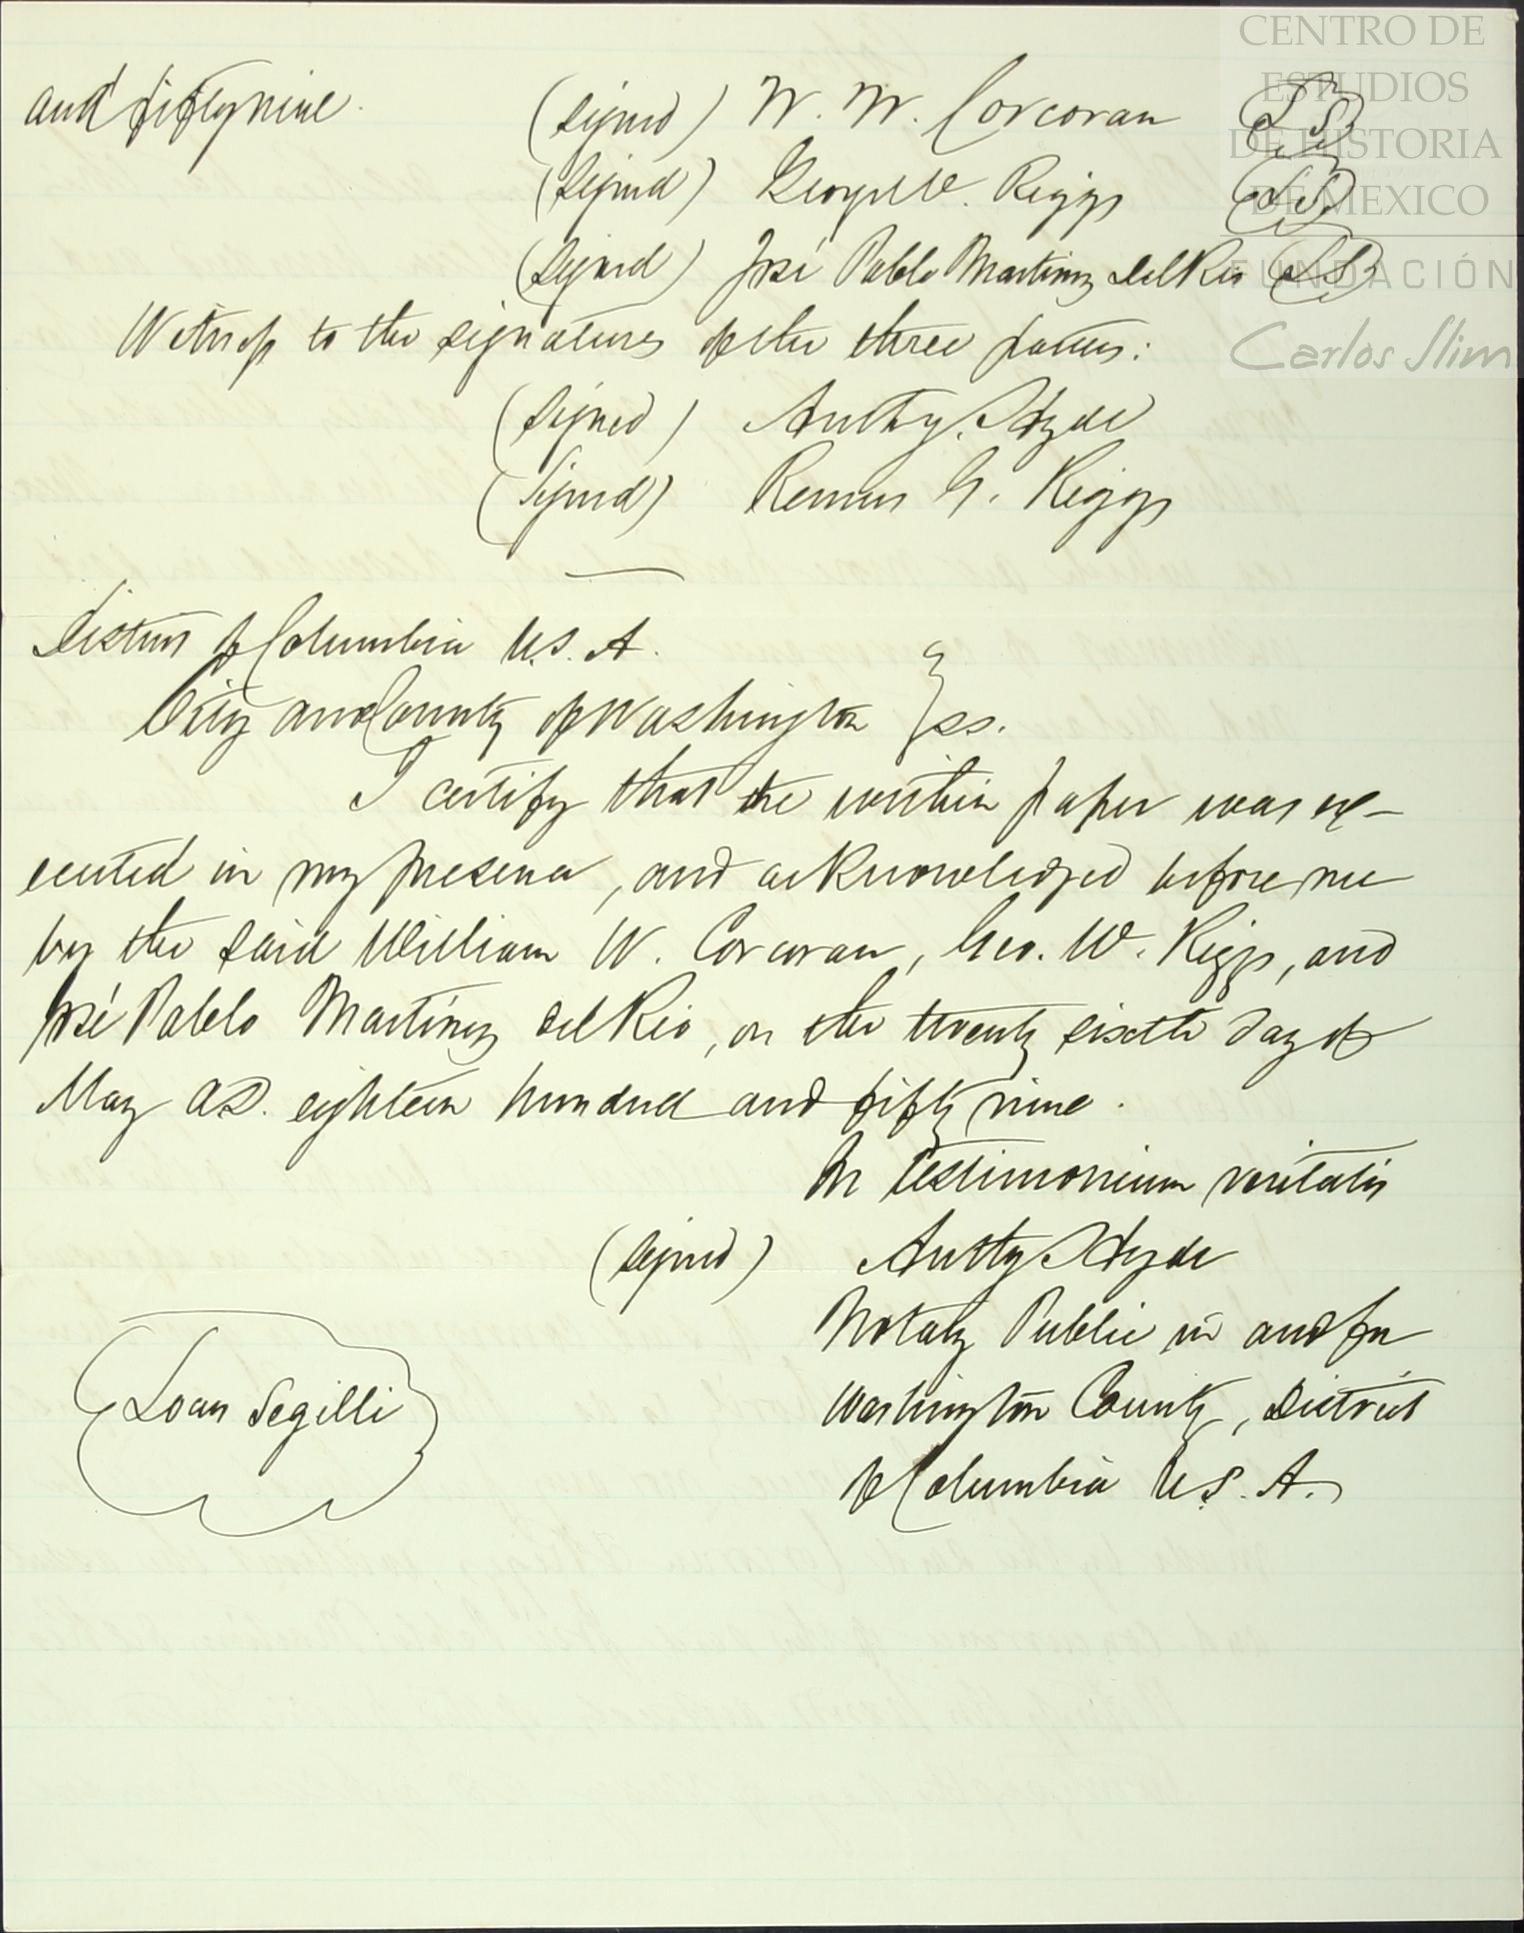 and fifty nine.
(signed) W. W. Corcoran L.S.
(signed) George W. Riggs L.S.
(signed) José Pablo Martinez Del Rio L.S.
Witness to the signatures of the three parties:
(signed) Anthy. Hyde
(signed) Remus G. Riggs
District of Columbia U.S. A.
City and County of Washington } ss.
I certify that the within paper was ex-
ecuted in my presence, and acknowledged before me
by the said William W. Corcoran, Geo. W. Riggs, and
José Pablo Martínez del Rio, on the twenty sixth day of
May A.D. eighteen hundred and fifty nine.
In testimonium veritatis
(signed) Anthy Hyde
Notary Public in and for
Washington County, District
of Columbia U.S. A.
Locus Segilli
CENTRO DE
ESTUDIOS
DE HISTORIA
DE MEXICO
FUNDACIÓN
Carlos Slim